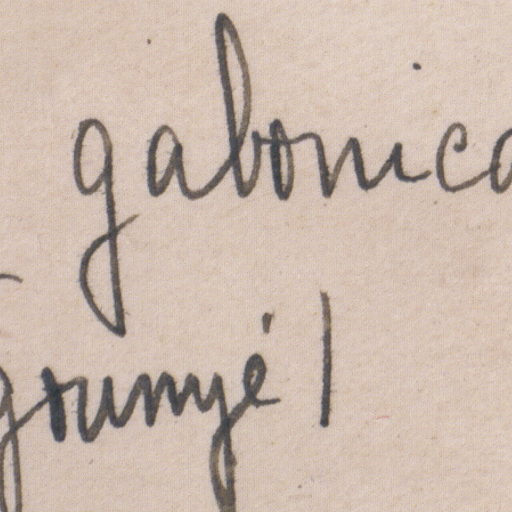 gabonica
grumyé |